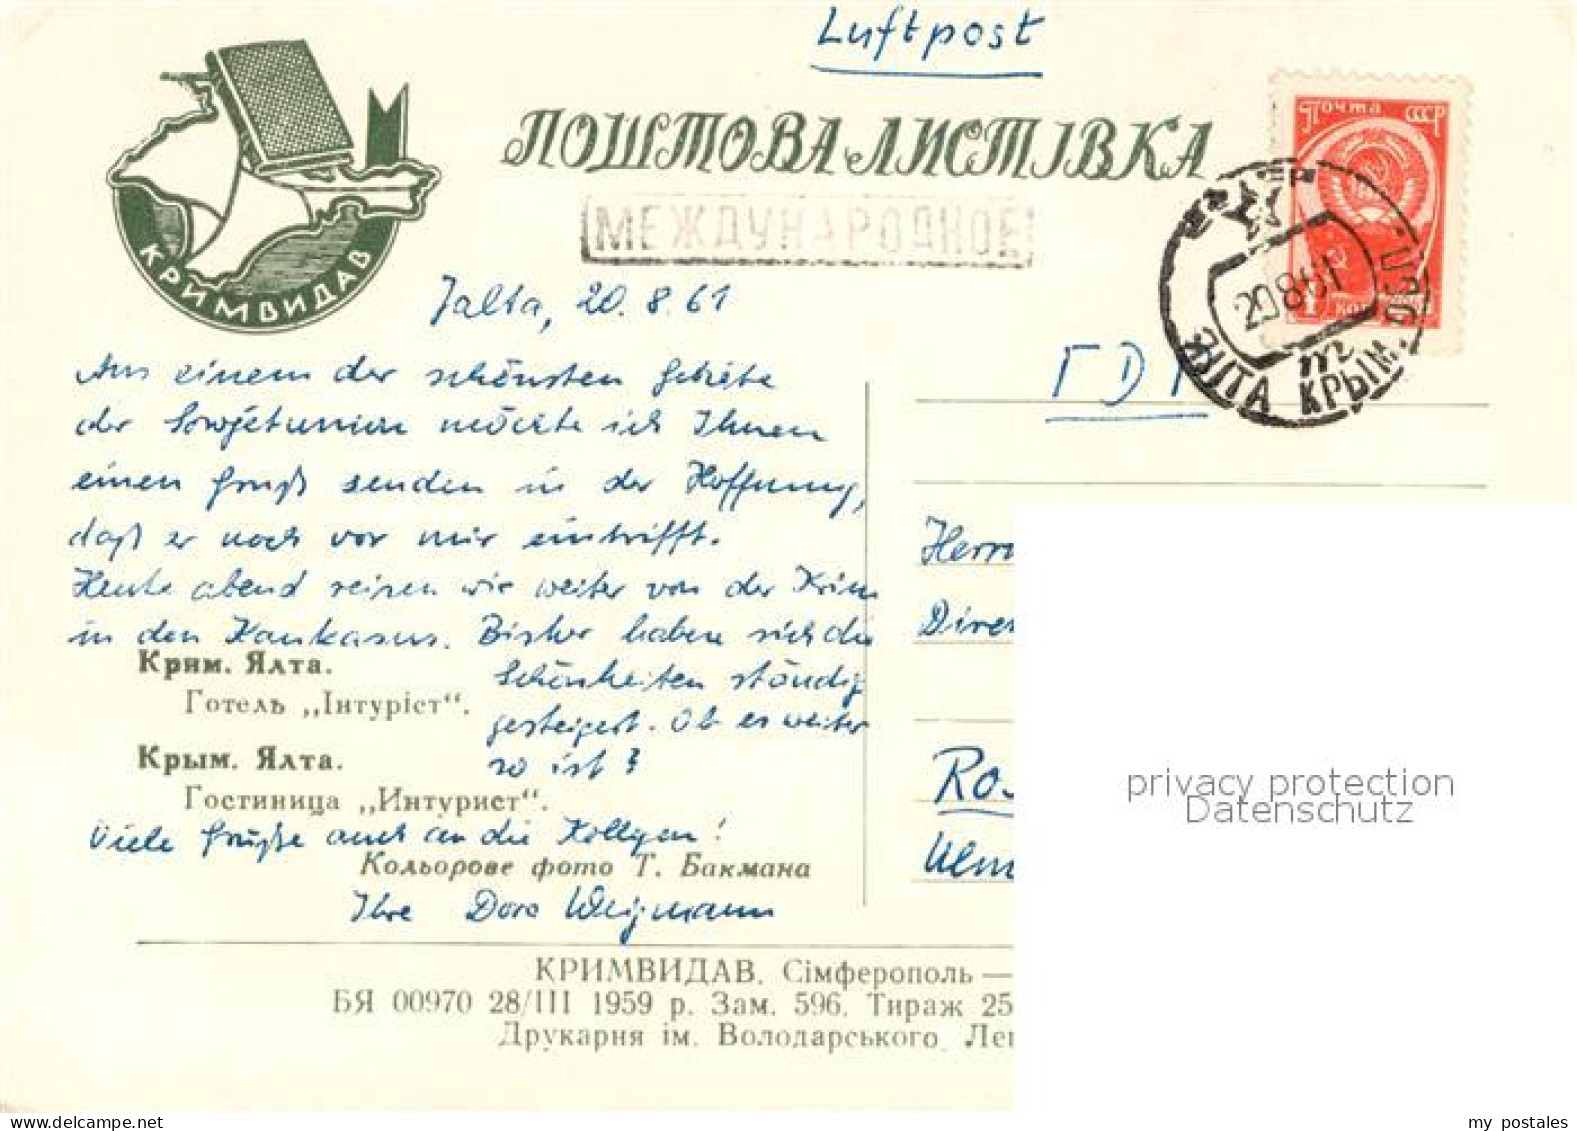 Luftpost
ПОШТОВА ЛИСТІВКА
КРИМВИДАВ
МЕЖДУНАРОДНОЕ
Почта СССР
20861
ЯЛТА КРЫМ. ОБЛ
Jalta, 20.8.61
Aus einem der schönsten Gebiete
der Sowjetunion möchte ich Ihnen
einen Gruß senden in der Hoffnung,
daß er noch vor mir eintrifft.
Heute abend reisen wir weiter von der Krim
in den Kaukasus. Bisher haben sich die
Schönheiten ständig
gesteigert. Ob es weiter
so ist?
Крим. Ялта.
Готель „Інтуріст“.
Крым. Ялта.
Гостиница „Интурист“.
Viele Grüße auch an die Kollegen!
Кольорове фото Т. Бакмана
Ihre Dora Weigmann
ГДР
Herrn
Direk
Ros
Ulm
КРИМВИДАВ. Сімферополь —
БЯ 00970 28/III 1959 р. Зам. 596. Тираж 25
Друкарня ім. Володарського. Ле
privacy protection
Datenschutz
my postales